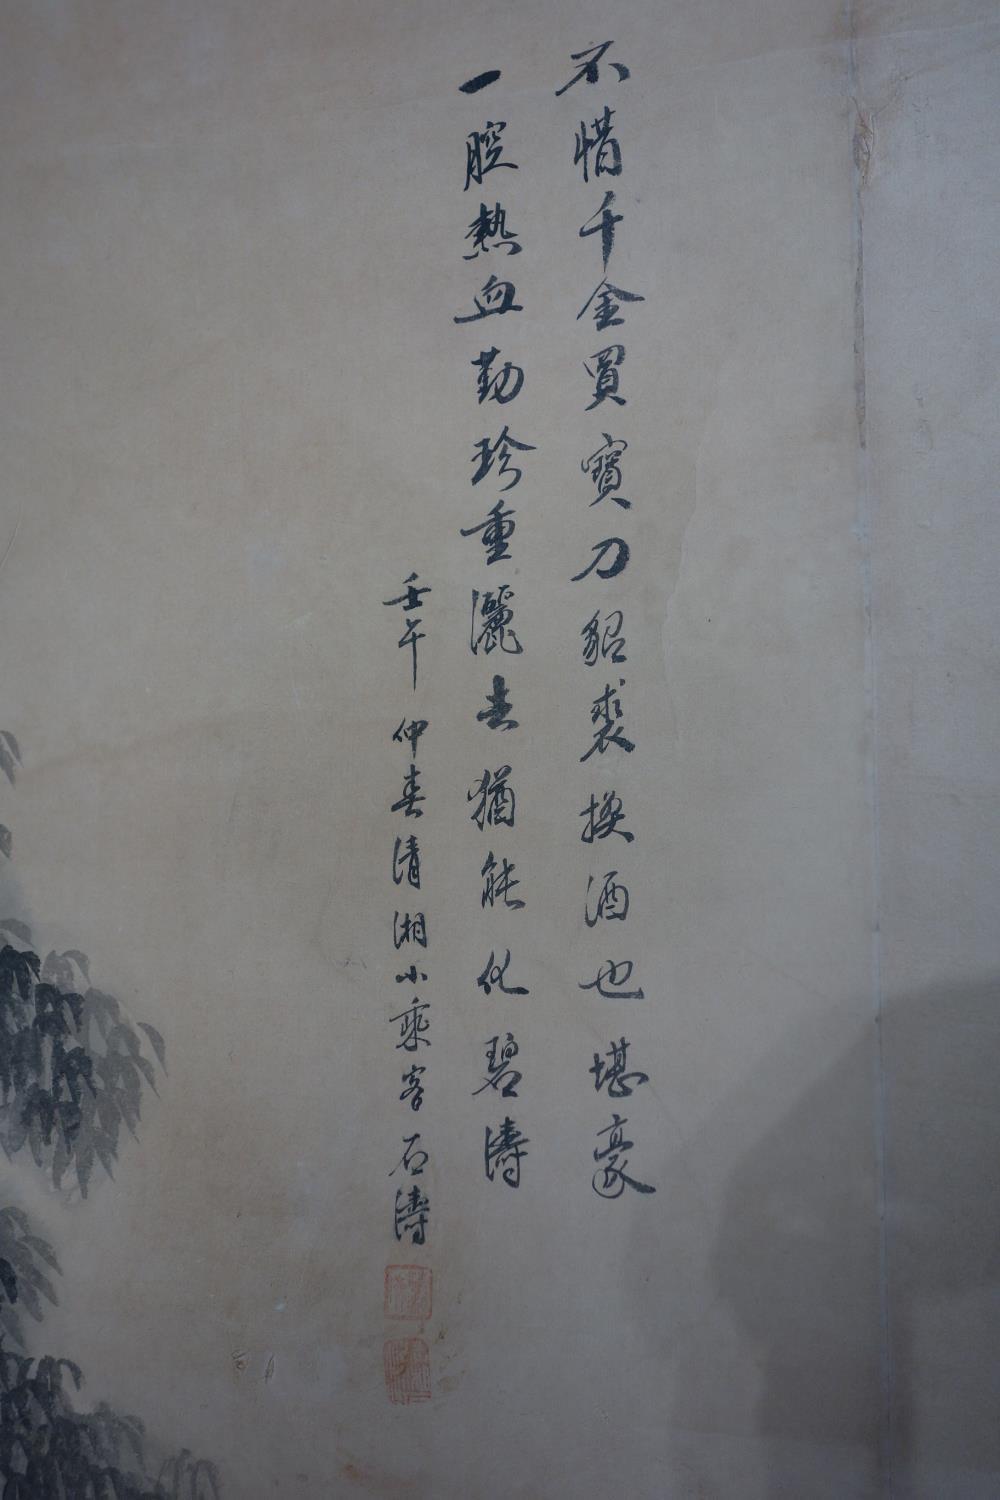 不惜千金買寶刀貂裘換酒也堪豪
一腔熱血勤珍重灑去猶能化碧濤
壬午仲春清湘小乘客石濤